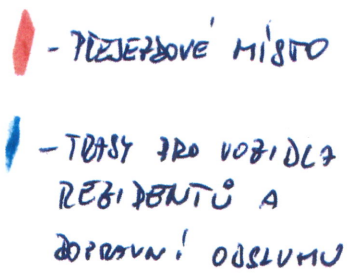 - PŘEJEZDOVÉ MÍSTO
- TRASY PRO VOZIDLA
REZIDENTŮ A
DOPRAVNÍ OBSLUHU